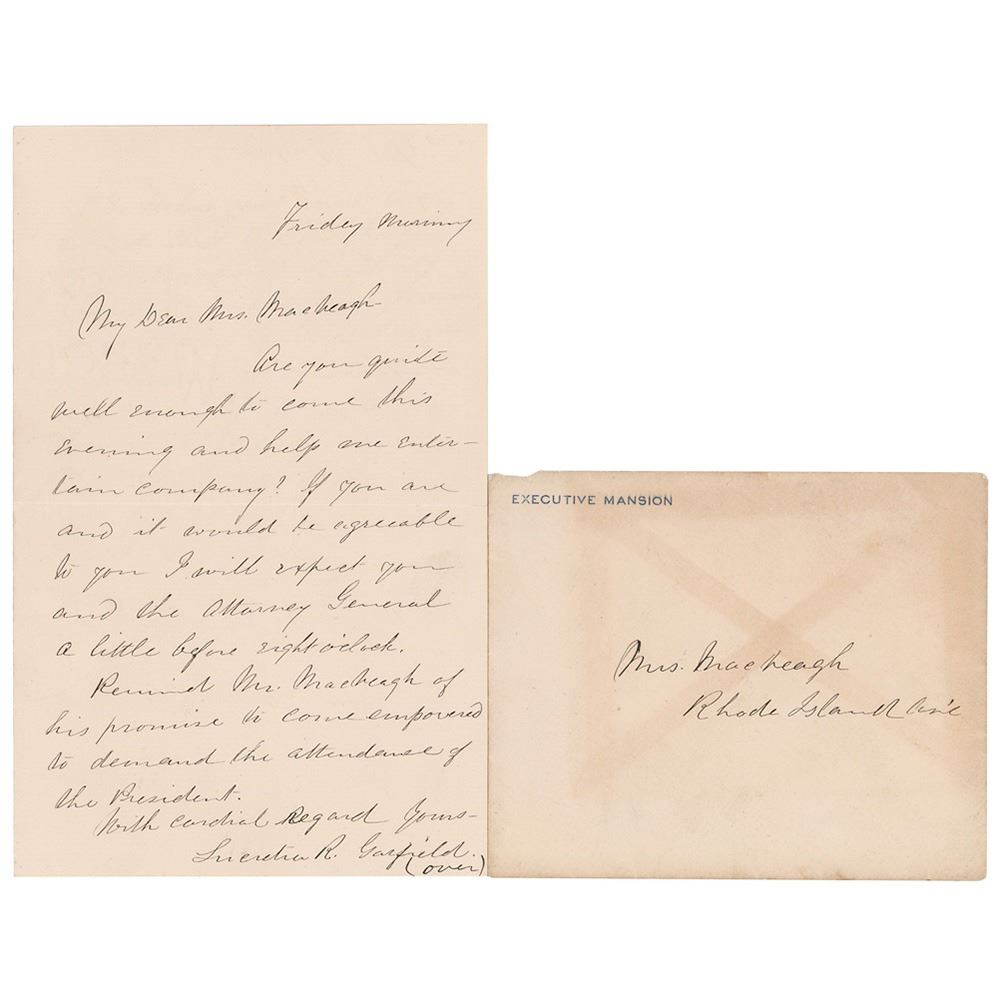 Friday Morning
My Dear Mrs. MacVeagh
Are you quite
well enough to come this
evening and help me enter-
tain company? If you are
and it would be agreeable
to you I will expect you
and the Attorney General
a little before eight o'clock.
Remind Mr. MacVeagh of
his promise to come empowered
to demand the attendance of
the President.
With cordial Regard Yours-
Lucretia R. Garfield.
(over)
EXECUTIVE MANSION
Mrs. MacVeagh
Rhode Island Ave